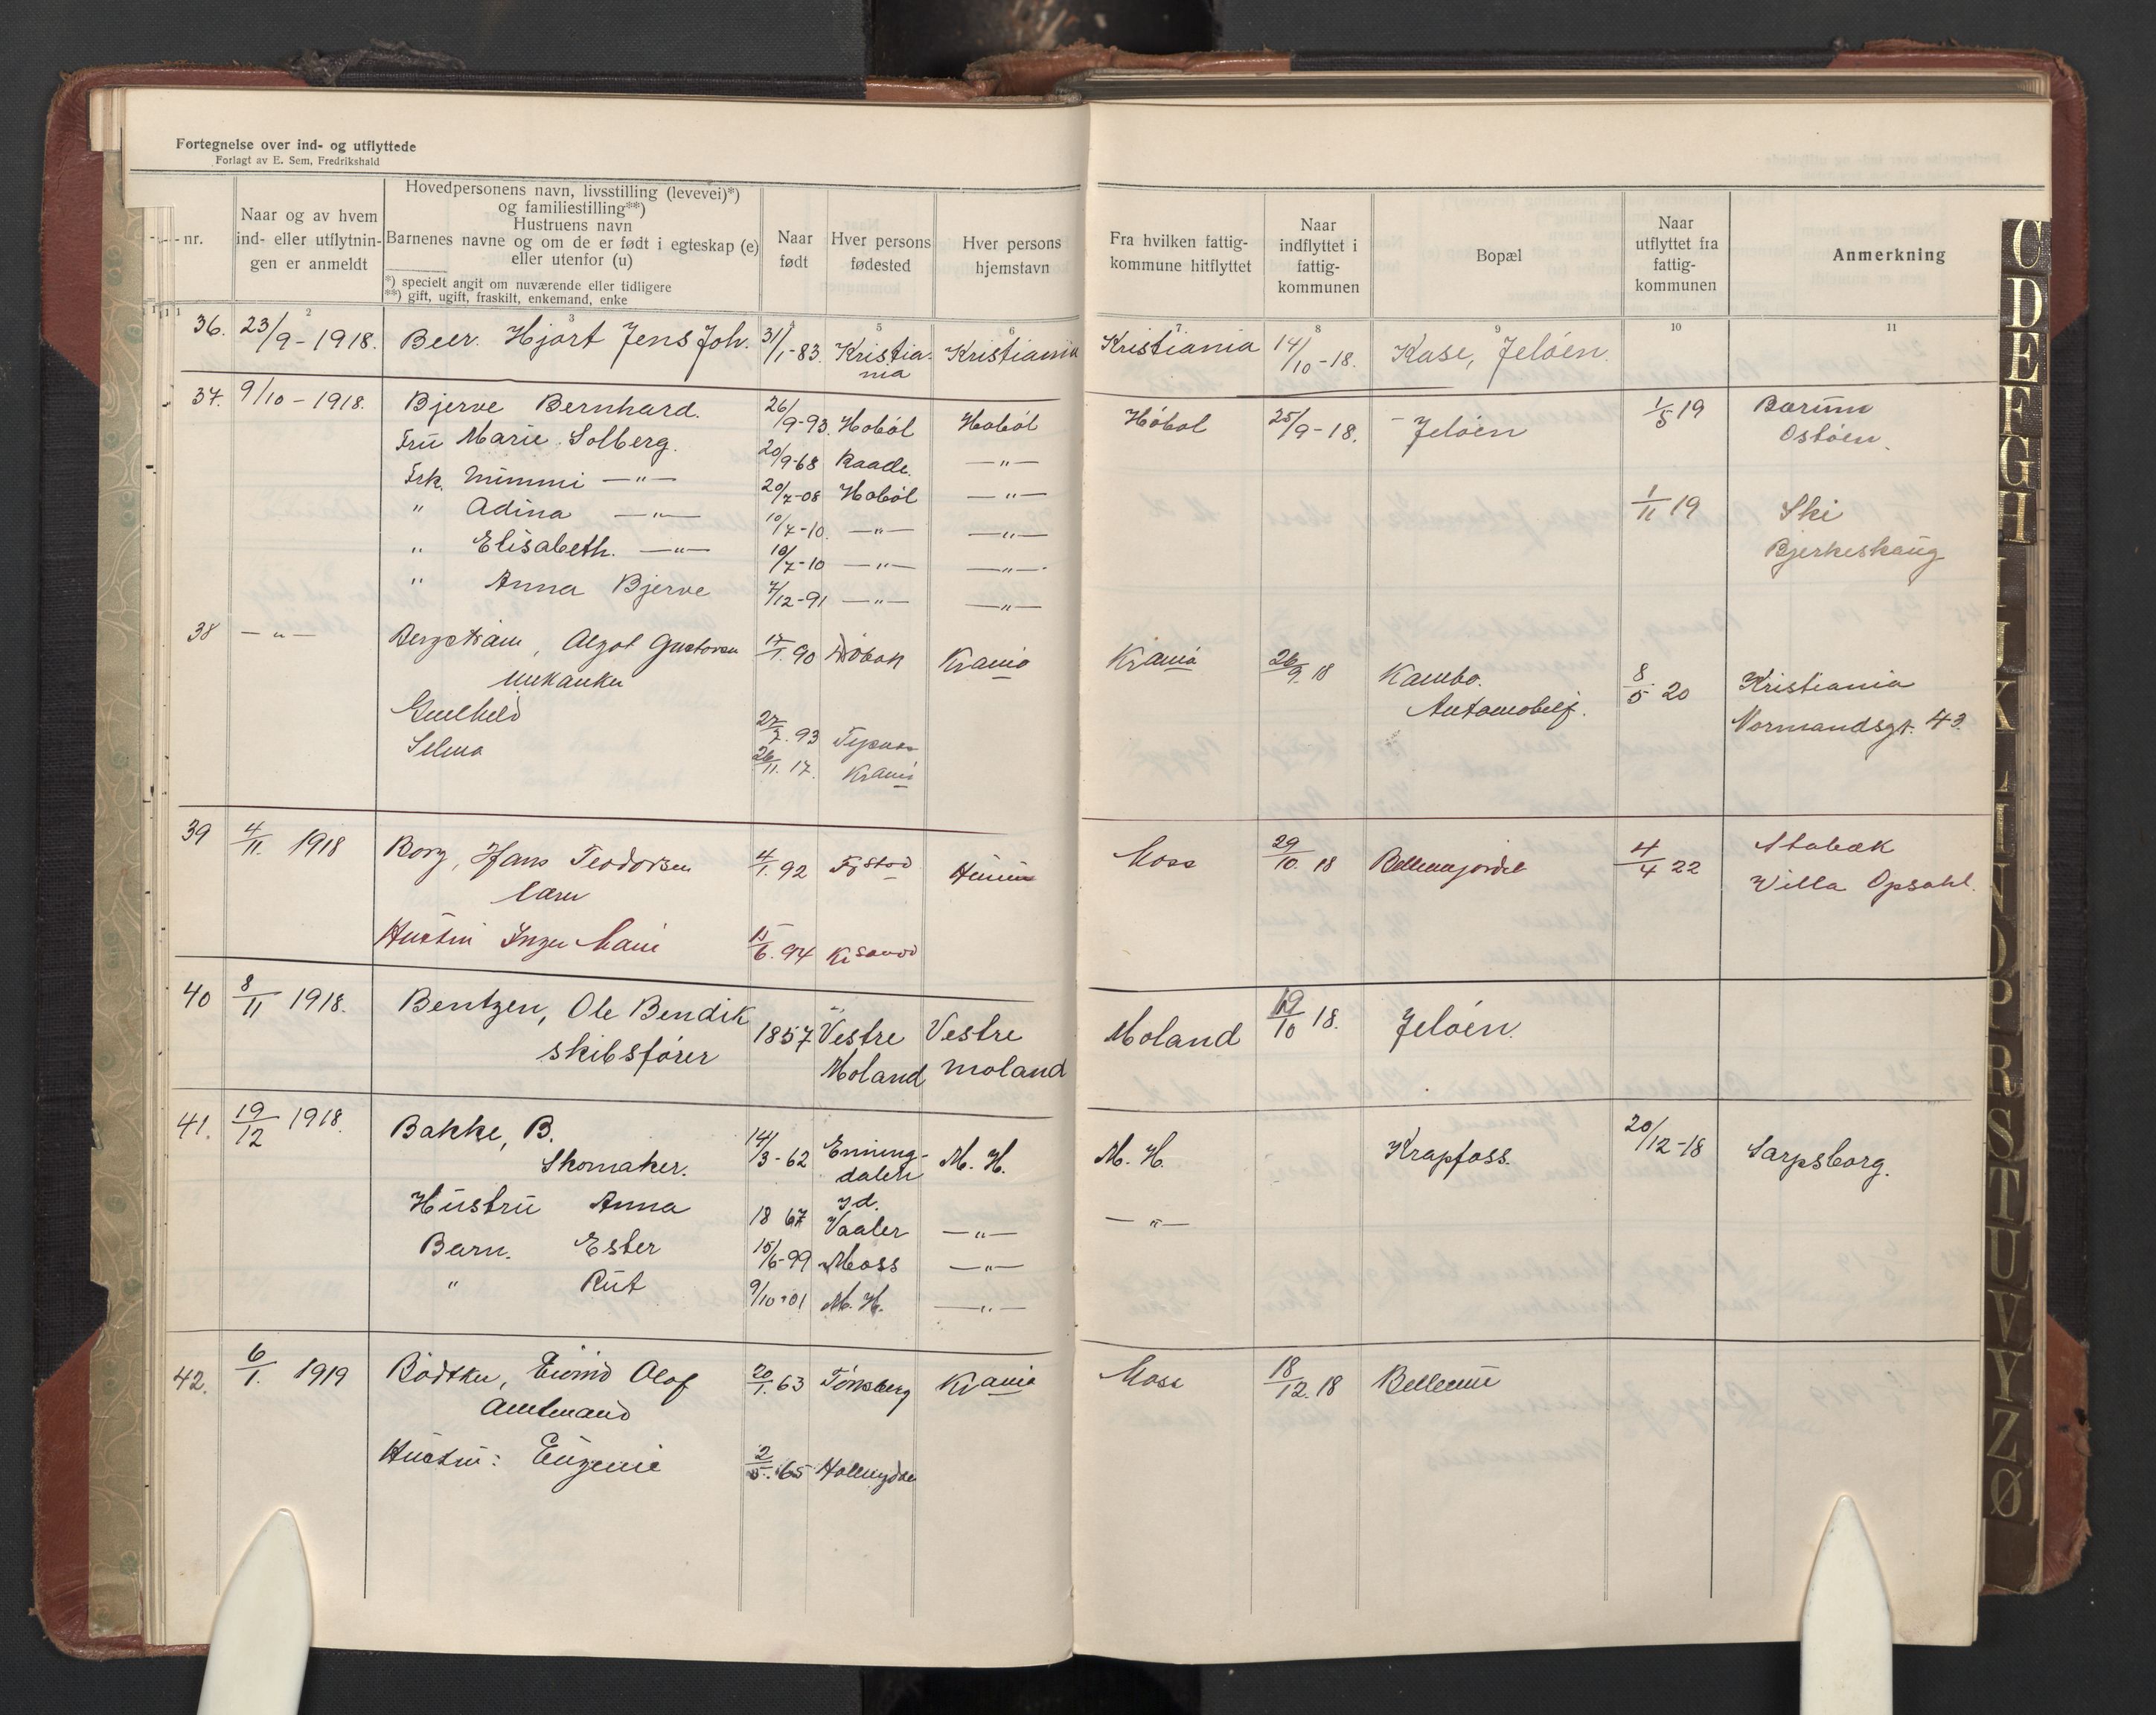 Fortegnelse over ind- og utflyttede
Forlagt av E. Sem, Fredrikshald
nr.
Naar og av hvem
ind- eller utflytnin-
gen er anmeldt
Hovedpersonens navn, livsstilling (levevei)*)
og familiestilling**)
Hustruens navn
Barnenes navne og om de er født i egteskap (e)
eller utenfor (u)
*) specielt angit om nuværende eller tidligere
**) gift, ugift, fraskilt, enkemand, enke
Naar
født
Hver persons
fødested
Hver persons
hjemstavn
Fra hvilken fattig-
kommune hitflyttet
Naar
indflyttet i
fattig-
kommunen
Bopæl
Naar
utflyttet fra
fattig-
kommunen
Anmerkning
1 2 3 4 5 6 7 8 9 10 11
36. 23/9-1918. Beer. Hjort Jens Joh. 31/1-83. Kristia- Kristiania Kristiania 14/10-18. Kase, Jeløen.
nia
37. 9/10-1918. Bjerve Bernhard. 26/9-93. Hobøl Hobøl Høbol 25/9-18. Jeløen 1/5 19 Bærum
Fru Marie Solberg. 20/9-68 Raade. —"— Ostøen.
Frk. Mimmi —"— 20/7-08 Hobøl —"—
" Adina —"— 10/7-10. —"— —"— 1/11 19 Ski
" Elisabeth. —"— 10/7-10 —"— —"— Bjerkeskaug
" Anna Bjerve 7/12-91 —"— —"—
38 —"— Bergstrøm, Algot Gustavsen 17/1. 90 Krania Krania 26/9 18 Kambo. 8/5 20 Kristiania
mekaniker Automobilf. Normandsgt. 43
27/7. 93
Selma 26/11. 17. Krania
39 4/11. 1918 Borg, Hans Teodorsen 4/1. 92 Fr.stad Moss 29/10. 18 Bellevuejordet 4/4 22 Stabæk
Villa Opsahl.
Hustru Inga Marie 15/6. 94 Kr.sand
40 8/11 1918. Bentzen, Ole Bendik 1857 Vestre Vestre Moland 19/10 18. Jeløen.
skibsfører Moland Moland
41. 19/12 1918. Bakke, B. 14/3-62 Enning- M. H. M. H. Krapfoss. 20/12-18 Sarpsborg.
Skomaker. dalen
Id.
Hustru Anna 18 67 Vaaler —"— —"—
Barn. Ester 15/6-99 Moss —"—
" Rut 9/10-01 M. H. —"—
42. 6/1. 1919 Bødtker, Eivind Olaf 20/1. 63 Tønsberg Krania Moss 18/12. 18 Bellevue
Amtmand
Hustru: Eugenie 2/5. 65
C
D
E
F
G
H
I
J
K
L
M
N
O
P
R
S
T
U
V
Y
Z
Ø